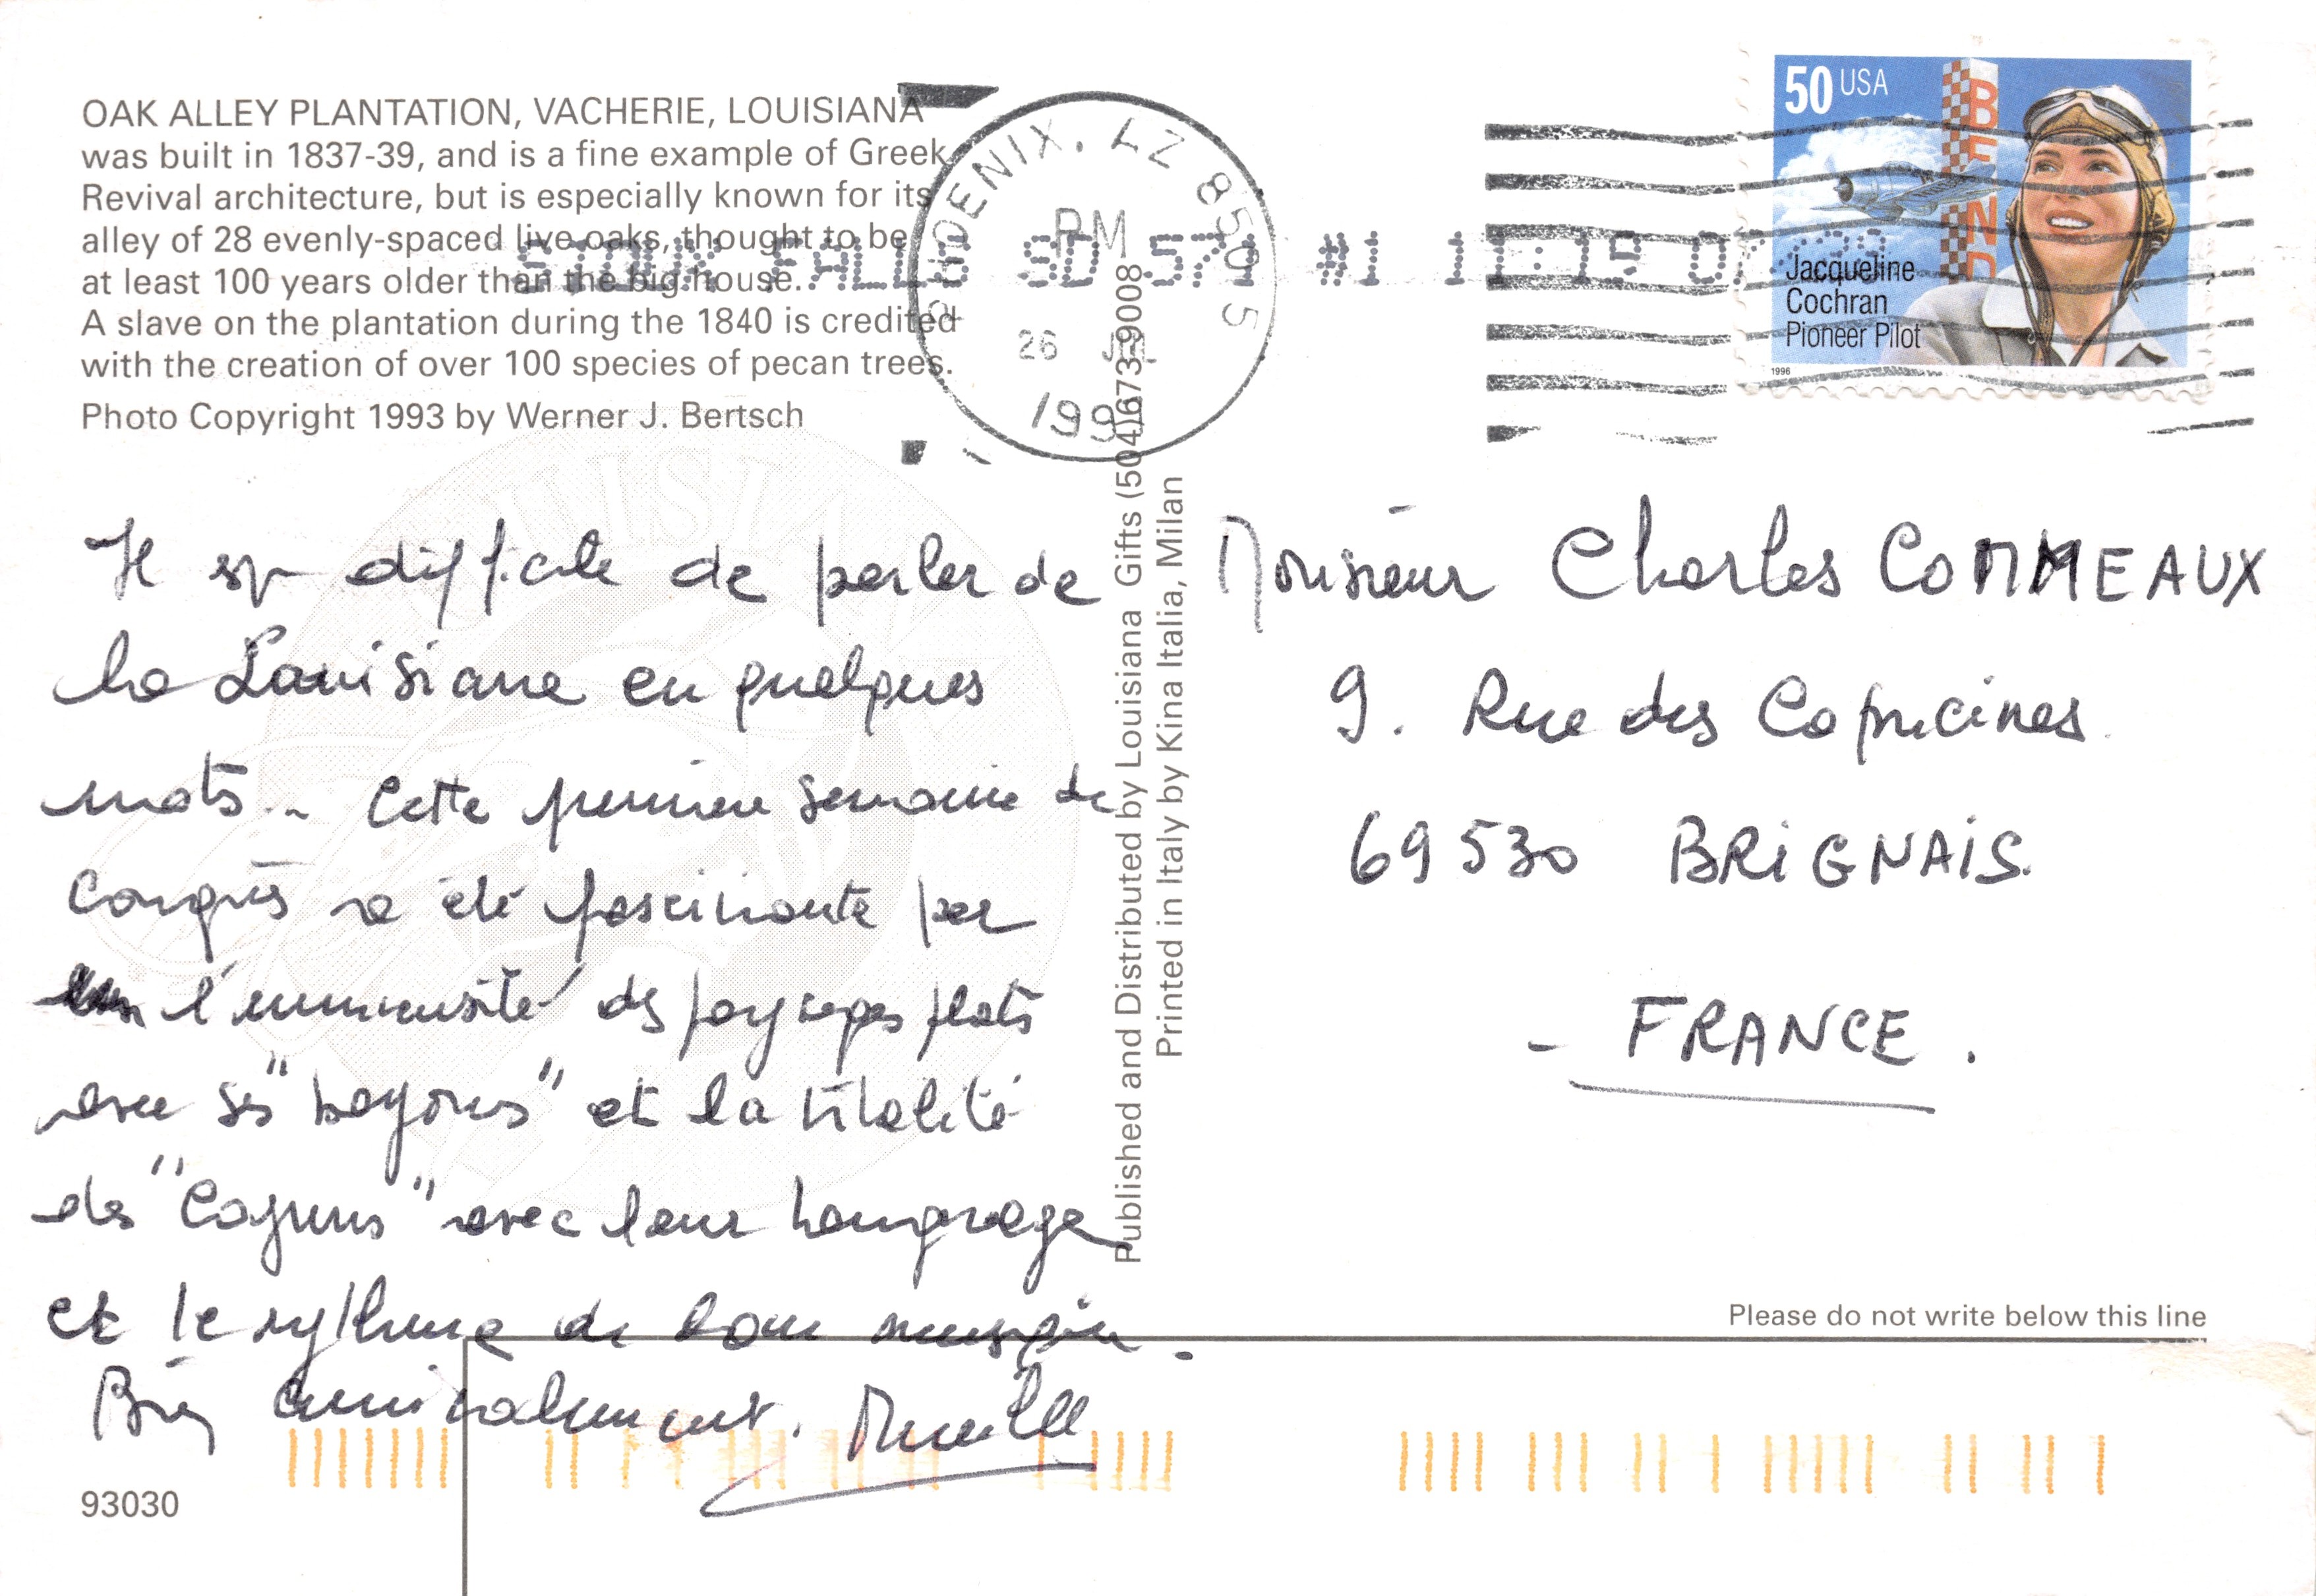 OAK ALLEY PLANTATION, VACHERIE, LOUISIANA
was built in 1837-39, and is a fine example of Greek
Revival architecture, but is especially known for its
alley of 28 evenly-spaced live oaks, thought to be
at least 100 years older than the big house.
A slave on the plantation during the 1840 is credited
with the creation of over 100 species of pecan trees.
Photo Copyright 1993 by Werner J. Bertsch
PHOENIX, AZ 850
PM
26 JUL
199
FALLS SD 571 #1 11:19
50 USA
BEND
Jacqueline
Cochran
Pioneer Pilot
1996
Il est difficile de parler de
la Louisiane en quelques
mots... Cette première semaine de
Congrès a été fascinante par
l'immensité des paysages plats
avec ses "bayous" et la vitalité
des "Cajuns" avec leur langage
et le rythme de leur musique.
Bien amicalement.
93030
Published and Distributed by Louisiana Gifts (504)673-9008
Printed in Italy by Kina Italia, Milan
Monsieur Charles COMMEAUX
9. Rue des Capucines
69530 BRIGNAIS.
- FRANCE.
Please do not write below this line